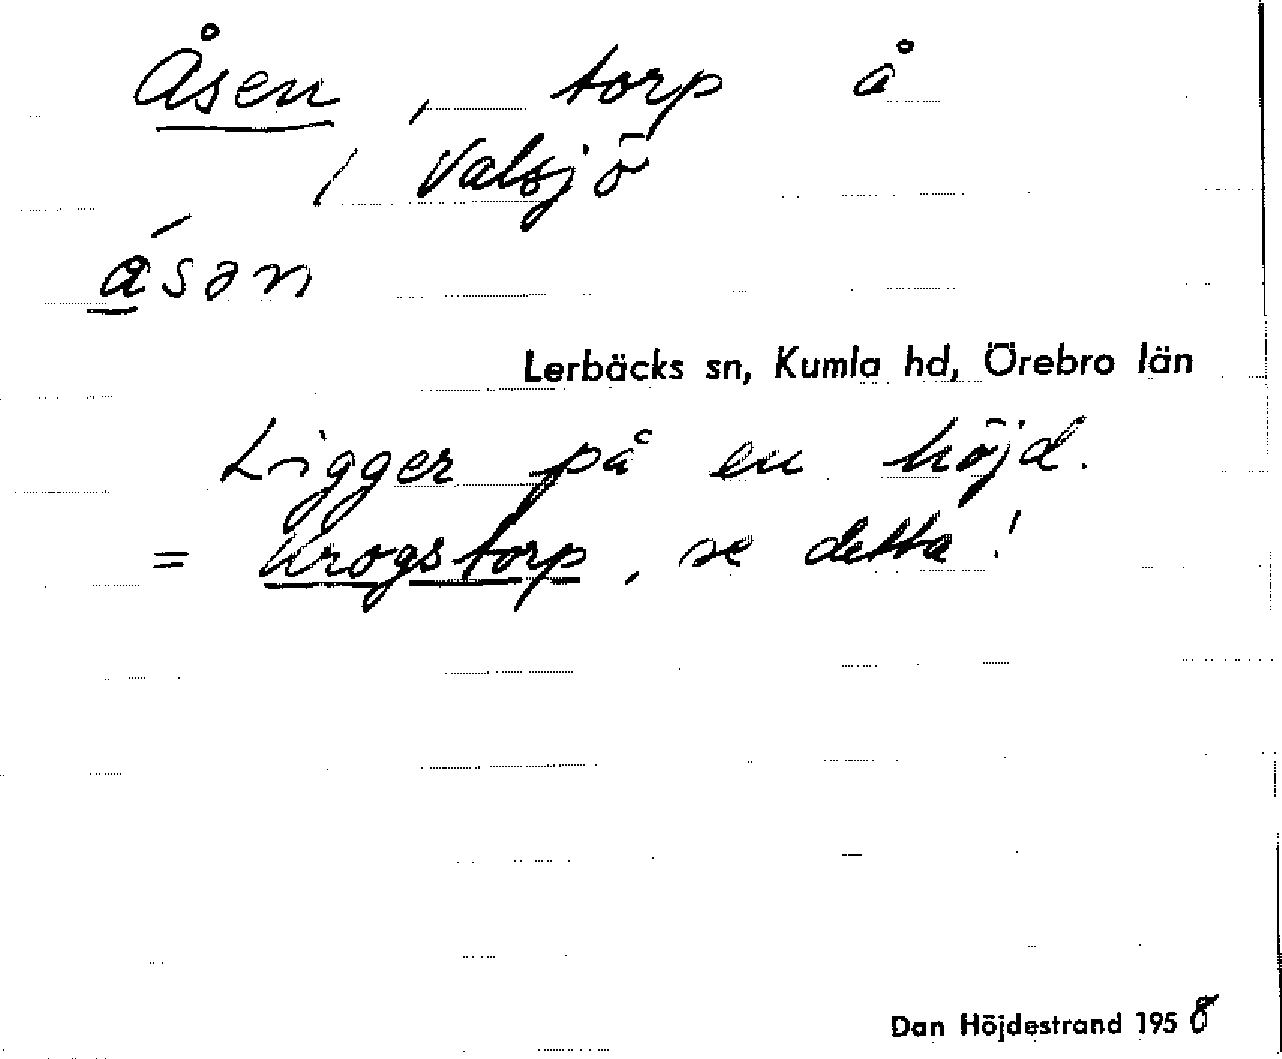 Åsen, torp å
/ Valsjö
ásən
Lerbäcks sn, Kumla hd, Örebro län
Ligger på en höjd.
= Krogstorp, se detta!
Dan Höjdestrand 1958